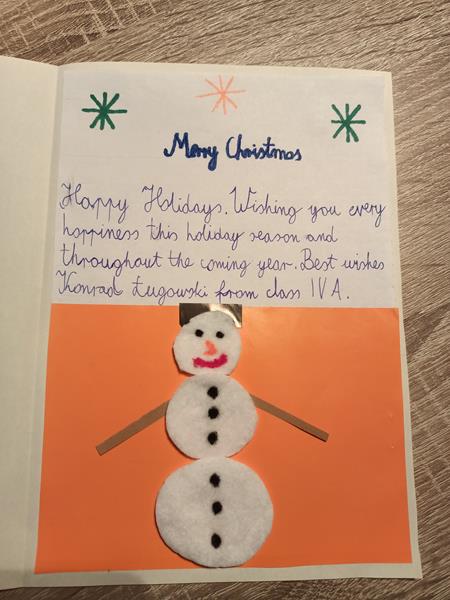 Merry Christmas
Happy Holidays. Wishing you every
happiness this holiday season and
throughout the coming year. Best wishes
Konrad Ługowski from class IV A.